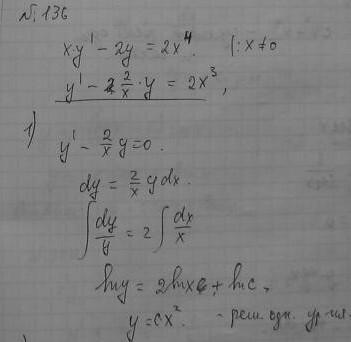 №136
x·y' - 2y = 2x⁴. |: x ≠ 0
y' - 2/x · y = 2x³,
1) y' - 2/x y = 0.
dy = 2/x y dx.
∫ dy/y = 2 ∫ dx/x
ln y = 2 ln x + ln c,
y = cx². - реш. одн. ур-ия.